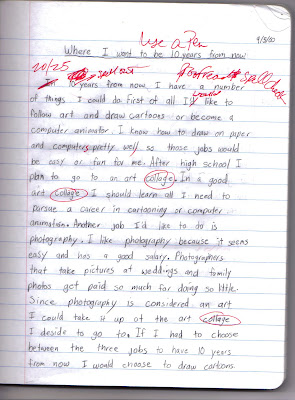 Use a Pen
9/3/00
Where I want to be 10 years from now
20/25 spell out
spell check
In 10 years from now, I have a number
of things I could do first of all I'd would like to
follow art and draw cartoons or become a
computer animator. I know how to draw on paper
and computers pretty well so those jobs would
be easy or fun for me. After high school I
plan to go to an art collage. In a good
art collage I should learn all I need to
pursue a career in cartooning or computer
animation. Another job I'd like to do is
photography. I like photography because it seems
easy and has a good salary. Photographers
that take pictures at weddings and family
phobos get paid so much for doing so little.
Since photography is considered an art
I could take it up at the art collage
I deside to go to. If I had to choose
between the three jobs to have 10 years
from now I would choose to draw cartoons